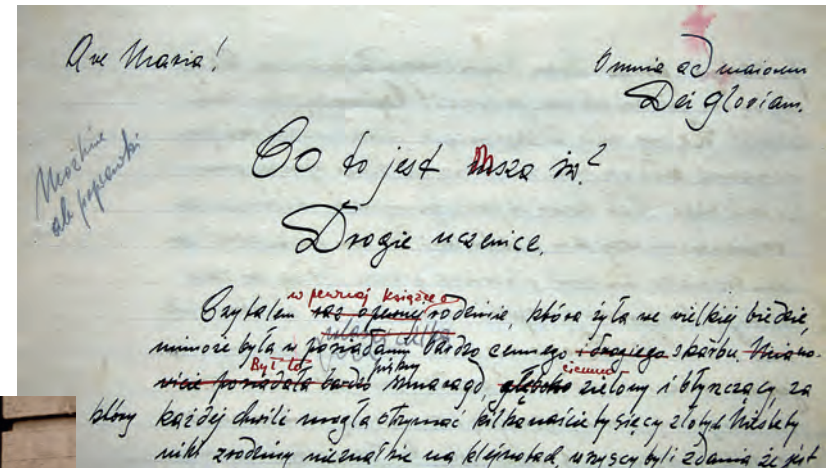 Ave Maria!
Omnia ad maiorem
Dei Gloriam.
Możliwe
ale poprawki
Co to jest Msza św.?
Drogie uczenice.
w pewnej książce
Czytałem raz o pewnej rodzinie, która żyła we wielkiej biedzie,
mimo że była w posiadaniu bardzo cennego i drogiego skarbu. Miano-
Był to piękny ciemno
wicie posiadała bardzo szmaragd, głęboko zielony i błyszczący, za
który każdej chwili mogła otrzymać kilkanaście tysięcy złotych. Niestety
nikt z rodziny nie znał się na klejnotach, wszyscy byli zdania że jest